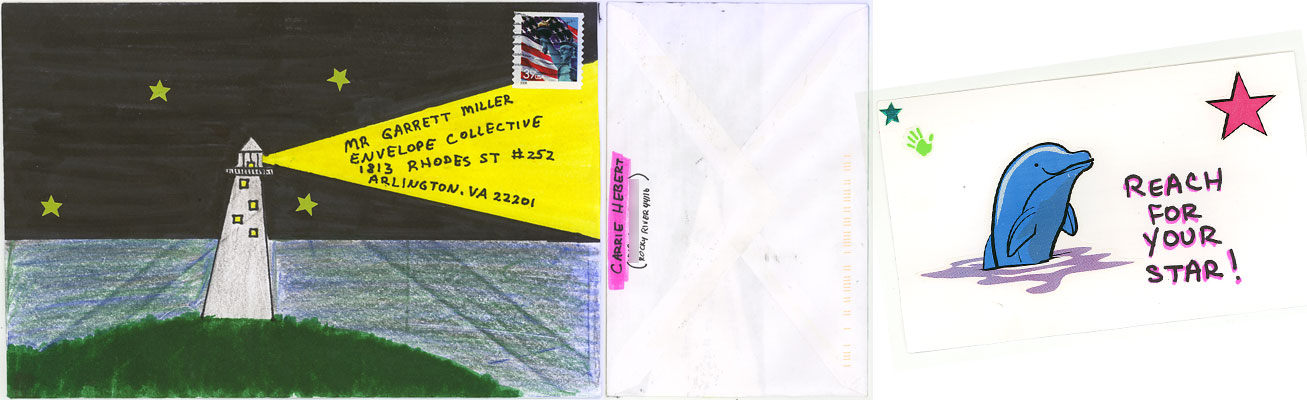 39
MR GARRETT MILLER
ENVELOPE COLLECTIVE
1813 RHODES ST #252
ARLINGTON, VA 22201
CARRIE HEBERT
(ROCKY RIVER 44116)
REACH
FOR
YOUR
STAR!